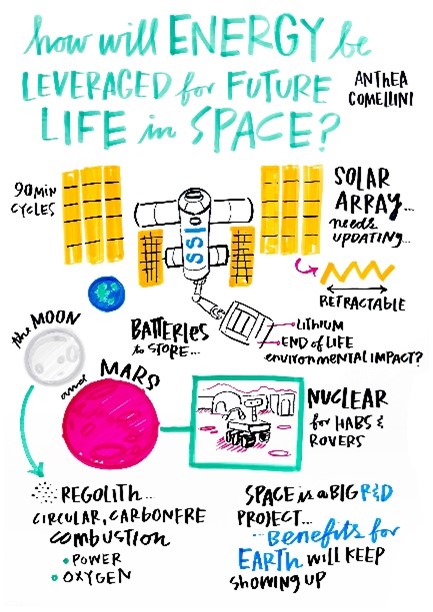 how will ENERGY be
LEVERAGED for FUTURE
LIFE in SPACE?
ANTHEA
COMELLINI
90 MIN
CYCLES
ISS
SOLAR
ARRAY...
needs
UPDATING...
RETRACTABLE
BATTERIES
to STORE...
LITHIUM
END OF LIFE
environmental IMPACT?
the MOON
and MARS
NUCLEAR
for HABS &
ROVERS
REGOLITH...
CIRCULAR, CARBON FRE
combustion
• POWER
• OXYGEN
SPACE is a BIG R&D
PROJECT...
...Benefits for
EARTH will KEEP
showing UP